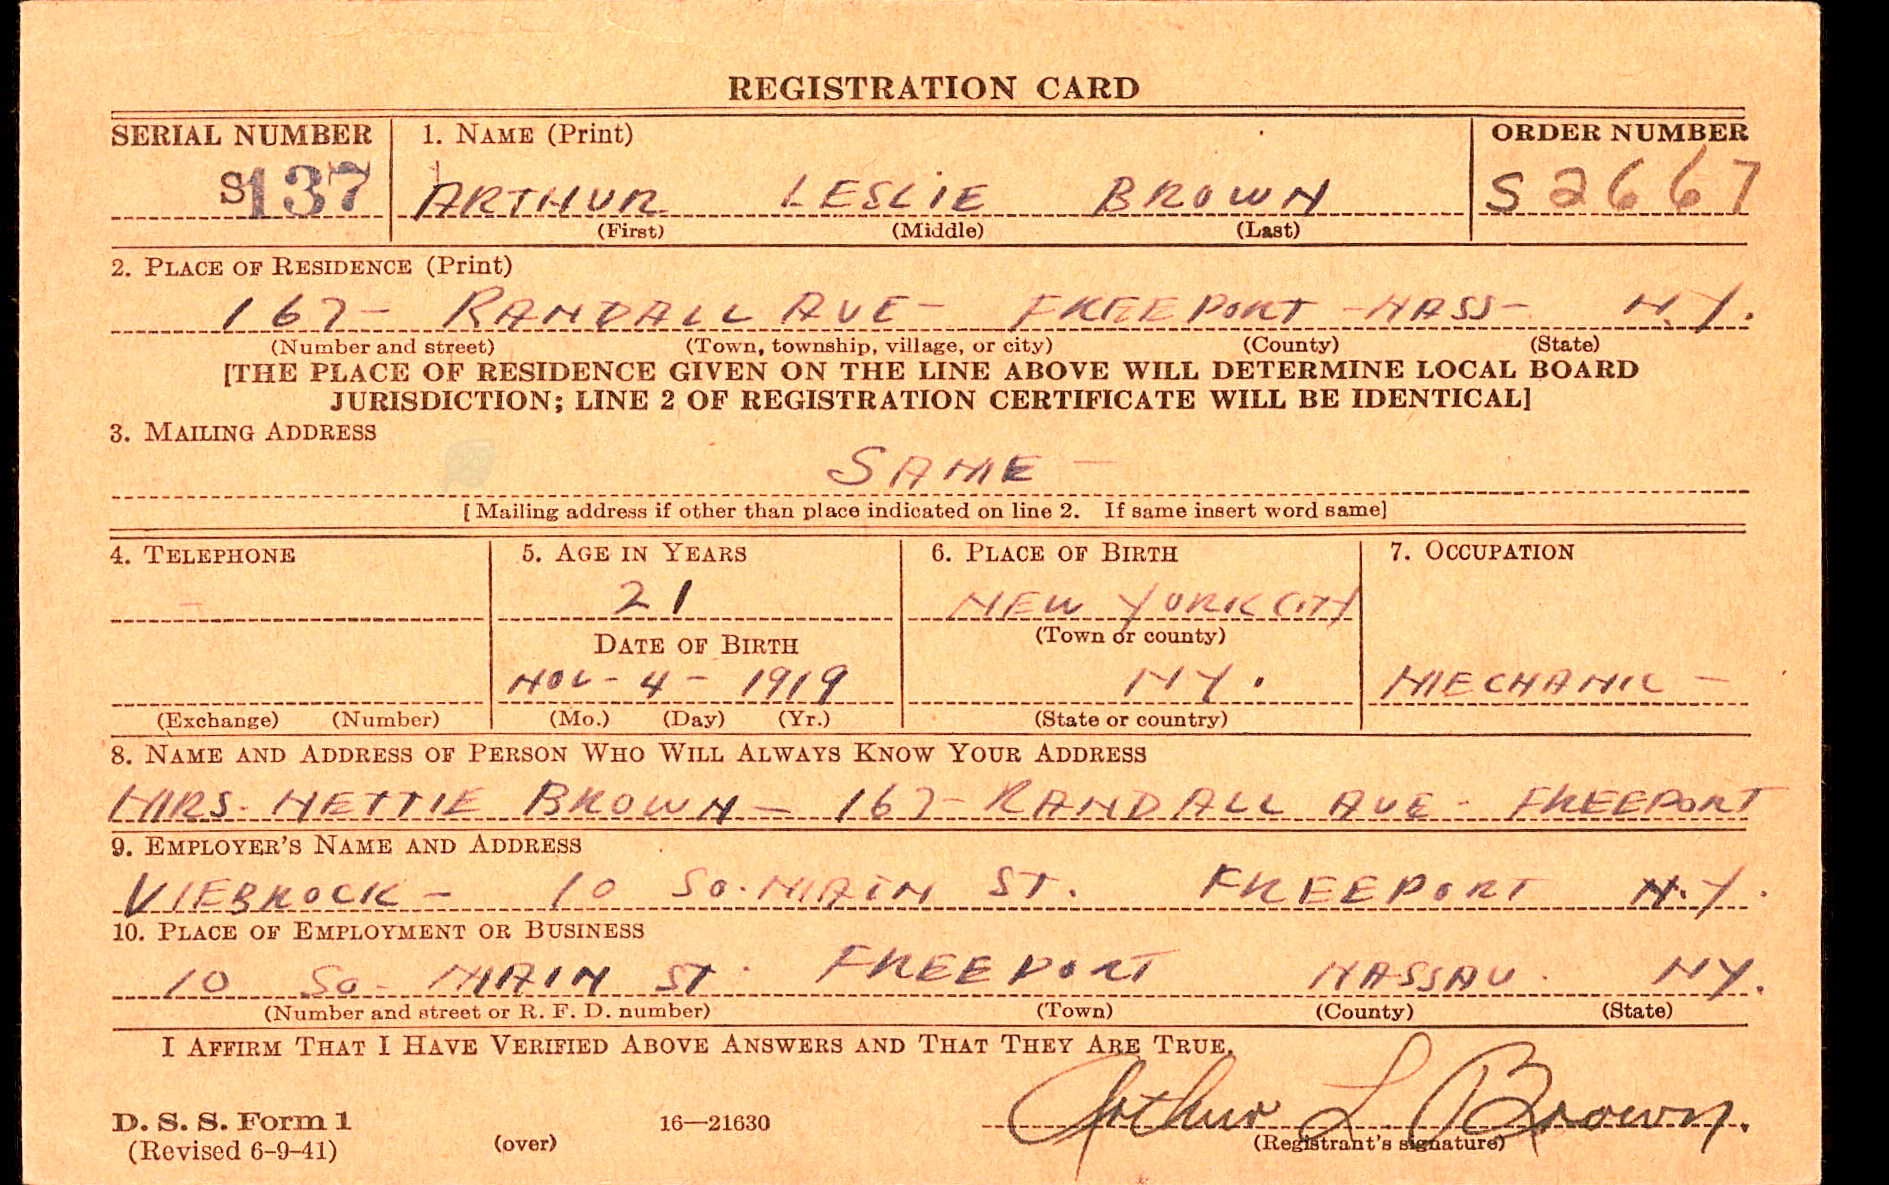 REGISTRATION CARD
SERIAL NUMBER 1. NAME (Print) ORDER NUMBER
S137 ARTHUR LESLIE BROWN S2667
(First) (Middle) (Last)
2. PLACE OF RESIDENCE (Print)
167- RANDALL AVE- FREEPORT -NASS- N.Y.
(Number and street) (Town, township, village, or city) (County) (State)
[THE PLACE OF RESIDENCE GIVEN ON THE LINE ABOVE WILL DETERMINE LOCAL BOARD
JURISDICTION; LINE 2 OF REGISTRATION CERTIFICATE WILL BE IDENTICAL]
3. MAILING ADDRESS
SAME -
[Mailing address if other than place indicated on line 2. If same insert word same]
4. TELEPHONE 5. AGE IN YEARS 6. PLACE OF BIRTH 7. OCCUPATION
21 NEW YORK CITY
DATE OF BIRTH (Town or county)
NOV- 4 - 1919 NY. MECHANIC -
(Exchange) (Number) (Mo.) (Day) (Yr.) (State or country)
8. NAME AND ADDRESS OF PERSON WHO WILL ALWAYS KNOW YOUR ADDRESS
MRS. NETTIE BROWN - 167- RANDALL AVE - FREEPORT
9. EMPLOYER'S NAME AND ADDRESS
VIEBROCK - 10 SO. MAIN ST. FREEPORT N.Y.
10. PLACE OF EMPLOYMENT OR BUSINESS
10 SO. MAIN ST. FREEPORT NASSAU. NY.
(Number and street or R. F. D. number) (Town) (County) (State)
I AFFIRM THAT I HAVE VERIFIED ABOVE ANSWERS AND THAT THEY ARE TRUE.
Arthur L. Brown.
D. S. S. Form 1 16—21630
(Revised 6-9-41) (over) (Registrant's signature)